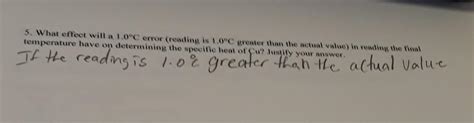 5. What effect will a 1.0°C error (reading is 1.0°C greater than the actual value) in reading the final
temperature have on determining the specific heat of Cu? Justify your answer.
If the reading is 1.0% greater than the actual value